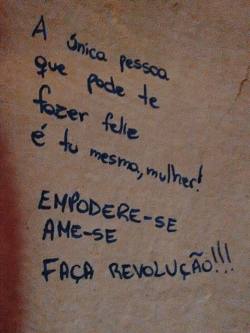 A única pessoa
que pode te
fazer feliz
é tu mesma, mulher!
EMPODERE-SE
AME-SE
FAÇA REVOLUÇÃO!!!